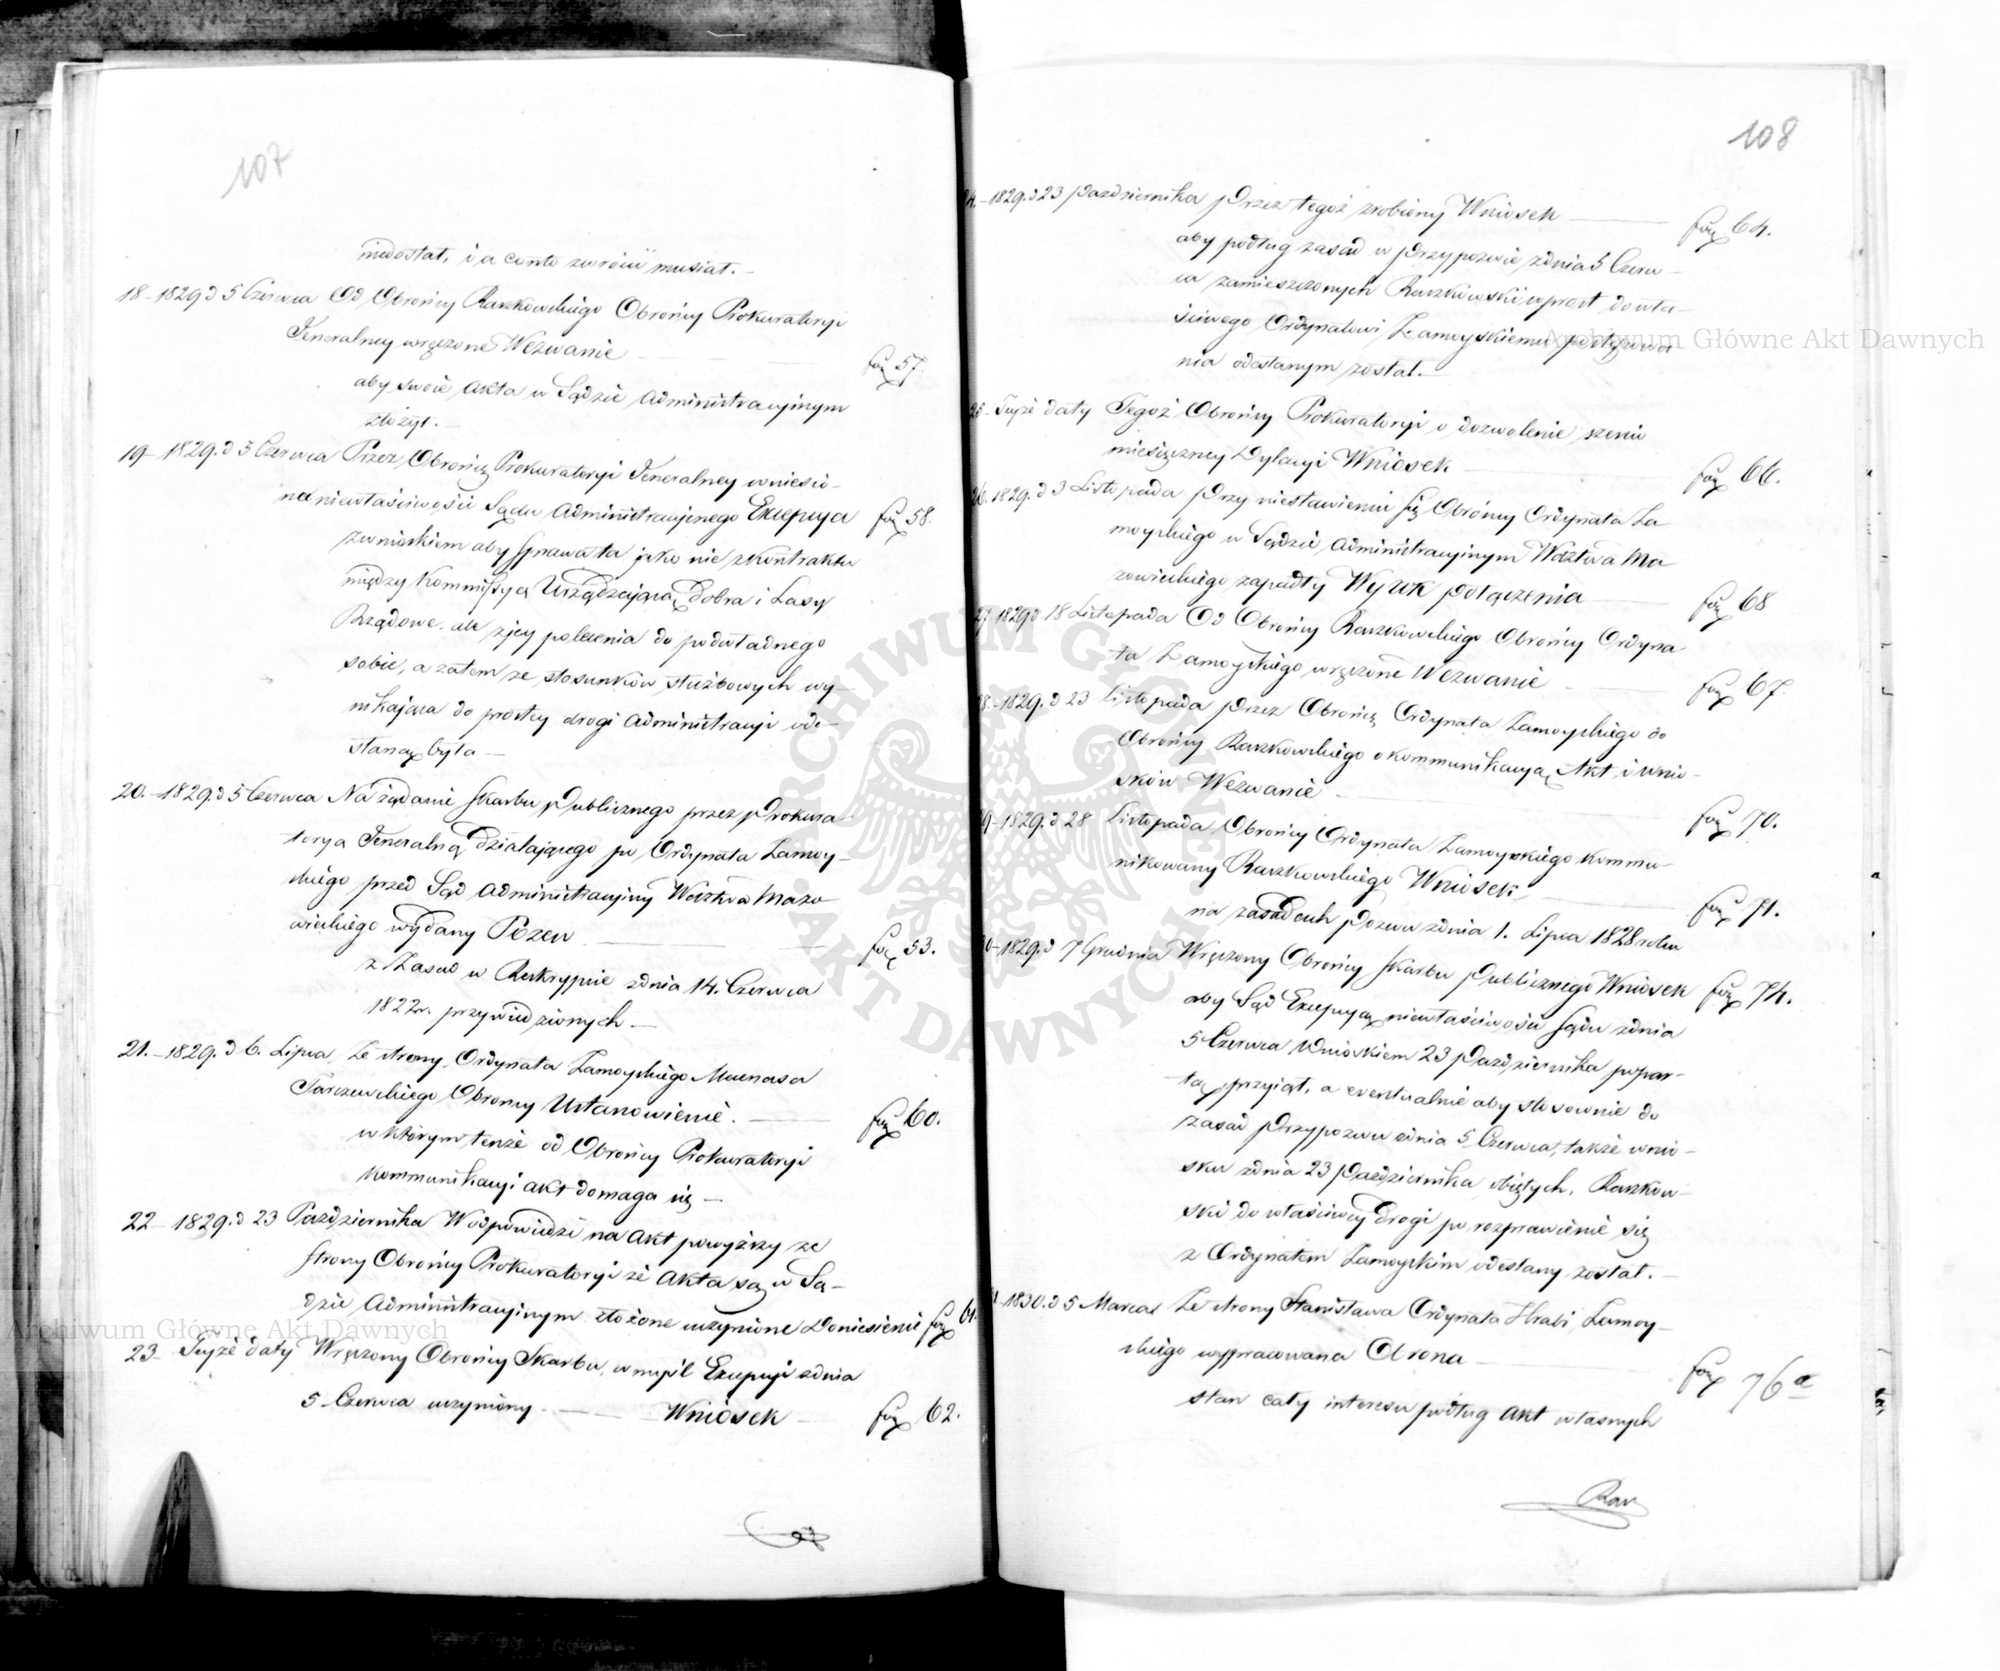 107
niedostał, i a conto zwrócić musiał. —
18 - 1829 d 5 Czerwca Od Obrońcy Raszkowskiego Obrońcy Prokuratoryi
Jeneralney wręczone Wezwanie — fol 57.
aby swoie akta w Sądzie Administracyinym
złożył. —
19 - 1829. d 5 Czerwca Przez Obrońcę Prokuratoryi Jeneralney wniesio-
na niewłaściwości Sądu Administracyjnego Excepcya fol 58.
z wnioskiem aby sprawa ta jako nie z kontraktu
między Kommissyą Urządzającą dobra i Lasy
Rządowe, ale z jey polecenia do podwładnego
sobie, a zatem ze stosunków służbowych wy-
nikająca do prostey drogi Administracyi ode-
słaną była —
20. - 1829. d 5 Czerwca Na żądanie Skarbu Publicznego przez Prokura-
torya Jeneralną działającego po Ordynata Zamoy-
skiego przed Sąd Administracyiny Wdztwa Mazo-
wieckiego wydany Pozew — fol 53.
z Zasad w Reskrypcie z dnia 14. Czerwca
1822 r. przywiedzionych —
21. - 1829. d 6. Lipca Ze strony Ordynata Zamoyskiego Macenasa
Tarczewskiego Obrońcy Ustanowienie. — fol 60.
w którym tenże od Obrońcy Prokuratoryi
kommunikacyi akt domaga się —
22 - 1829. d 23 Października W odpowiedzi na akt powyższy ze
strony Obrońcy Prokuratoryi że Akta są w Są-
dzie Administracyinym złożone uczynione Doniesienie fol 61.
23 - Teyże daty Wręczony Obrońcy Skarbu, w myśl Excepcyi z dnia
5 Czerwca uczyniony — Wniosek — fol 62.
108
24. - 1829. d 23 Października Przez tegoż zrobiony Wniosek — fol 64.
aby podług zasad w Przypozwie z dnia 5 Czerw-
ca zamieszczonych Raszkowski wprost do wła-
ściwego Ordynatowi Zamoyskiemu postępowa-
nia odesłanym został. —
25 - Teyże daty Tegoż Obrońcy Prokuratoryi o dozwolenie sześcio
miesięczney Dylacyi Wniosek — fol 66.
26. 1829. d 3 Listopada Przy niestawieniu się Obrońcy Ordynata Za
moyskiego w Sądzie Administracyinym Wdztwa Ma
zowieckiego zapadły Wyrok połączenia — fol 68
27 1829 d 18 Listopada Od Obrońcy Raszkowskiego Obrońcy Ordyna
ta Zamoyskiego wręczone Wezwanie — fol 67.
28. - 1829. d 23 Listopada Przez Obrońcę Ordynata Zamoyskiego do
Obrońcy Raszkowskiego o kommunikacyą Akt i wnio-
sków Wezwanie — fol 70.
29 - 1829. d 28 Listopada Obrońcy Ordynata Zamoyskiego kommu-
nikowany Raszkowskiego Wniosek, — fol 71.
na zasadach Pozwu z dnia 1. Lipca 1828 roku
30 - 1829. d 7 Grudnia Wręczony Obrońcy Skarbu Publicznego Wniosek fol 74.
aby Sąd Excepcyą niewłaściwości Sądu z dnia
5 Czerwca Wnioskiem 23 Października popar-
tą przyjął, a eventualnie aby stosownie do
zasad Przypozwu z dnia 5 Czerwca, także wnio-
sku z dnia 23 Października obiętych, Raszkow-
ski do właściwey drogi po rozprawienie się
z Ordynatem Zamoyskim odesłany został. —
31 - 1830. d 5 Marca Ze strony Stanisława Ordynata Hrabi Zamoy-
skiego wypracowana Obrona — fol 76 a
stan cały interesu podług akt własnych
Archiwum Główne Akt Dawnych
Archiwum Główne Akt Dawnych
ARCHIWUM GŁÓWNE AKT DAWNYCH